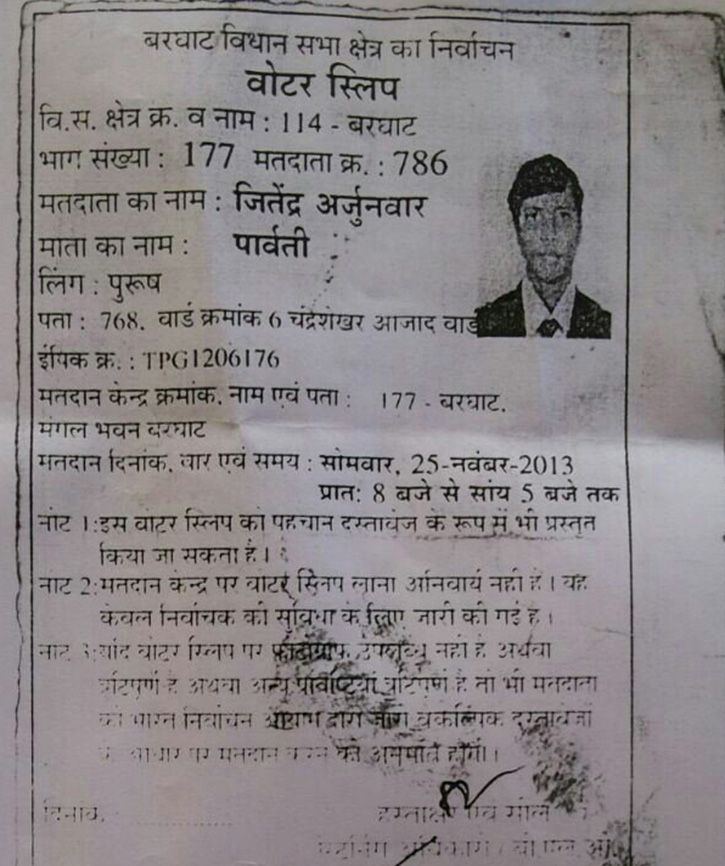 बरघाट विधान सभा क्षेत्र का निर्वाचन
वोटर स्लिप
वि.स. क्षेत्र क्र. व नाम : 114 - बरघाट
भाग संख्या : 177 मतदाता क्र. : 786
मतदाता का नाम : जितेंद्र अर्जुनवार
माता का नाम : पार्वती
लिंग : पुरूष
पता : 768, वार्ड क्रमांक 6 चंद्रेशेखर आजाद वार्ड
ईपिक क्र. : TPG1206176
मतदान केन्द्र क्रमांक, नाम एवं पता : 177 - बरघाट,
मंगल भवन बरघाट
मतदान दिनांक, वार एवं समय : सोमवार, 25-नवंबर-2013
प्रात: 8 बजे से सांय 5 बजे तक
नोट 1:इस वोटर स्लिप को पहचान दस्तावेज के रूप में भी प्रस्तुत
किया जा सकता है।
नोट 2:मतदान केन्द्र पर वोटर स्लिप लाना अनिवार्य नही है। यह
केवल निर्वाचक की सुविधा के लिए जारी की गई है।
नोट 3:यदि वोटर स्लिप पर फोटोग्राफ उपलब्ध नही है अथवा
त्रुटिपूर्ण है अथवा अन्य प्रविष्टियां त्रुटिपूर्ण है तो भी मतदाता
को भारत निर्वाचन आयोग द्वारा जारी वैकल्पिक दस्तावेजों
के आधार पर मतदान करने की अनुमति होगी।
दिनांक
हस्ताक्षर एवं सील
अधिकारी / बी.एल.ओ.